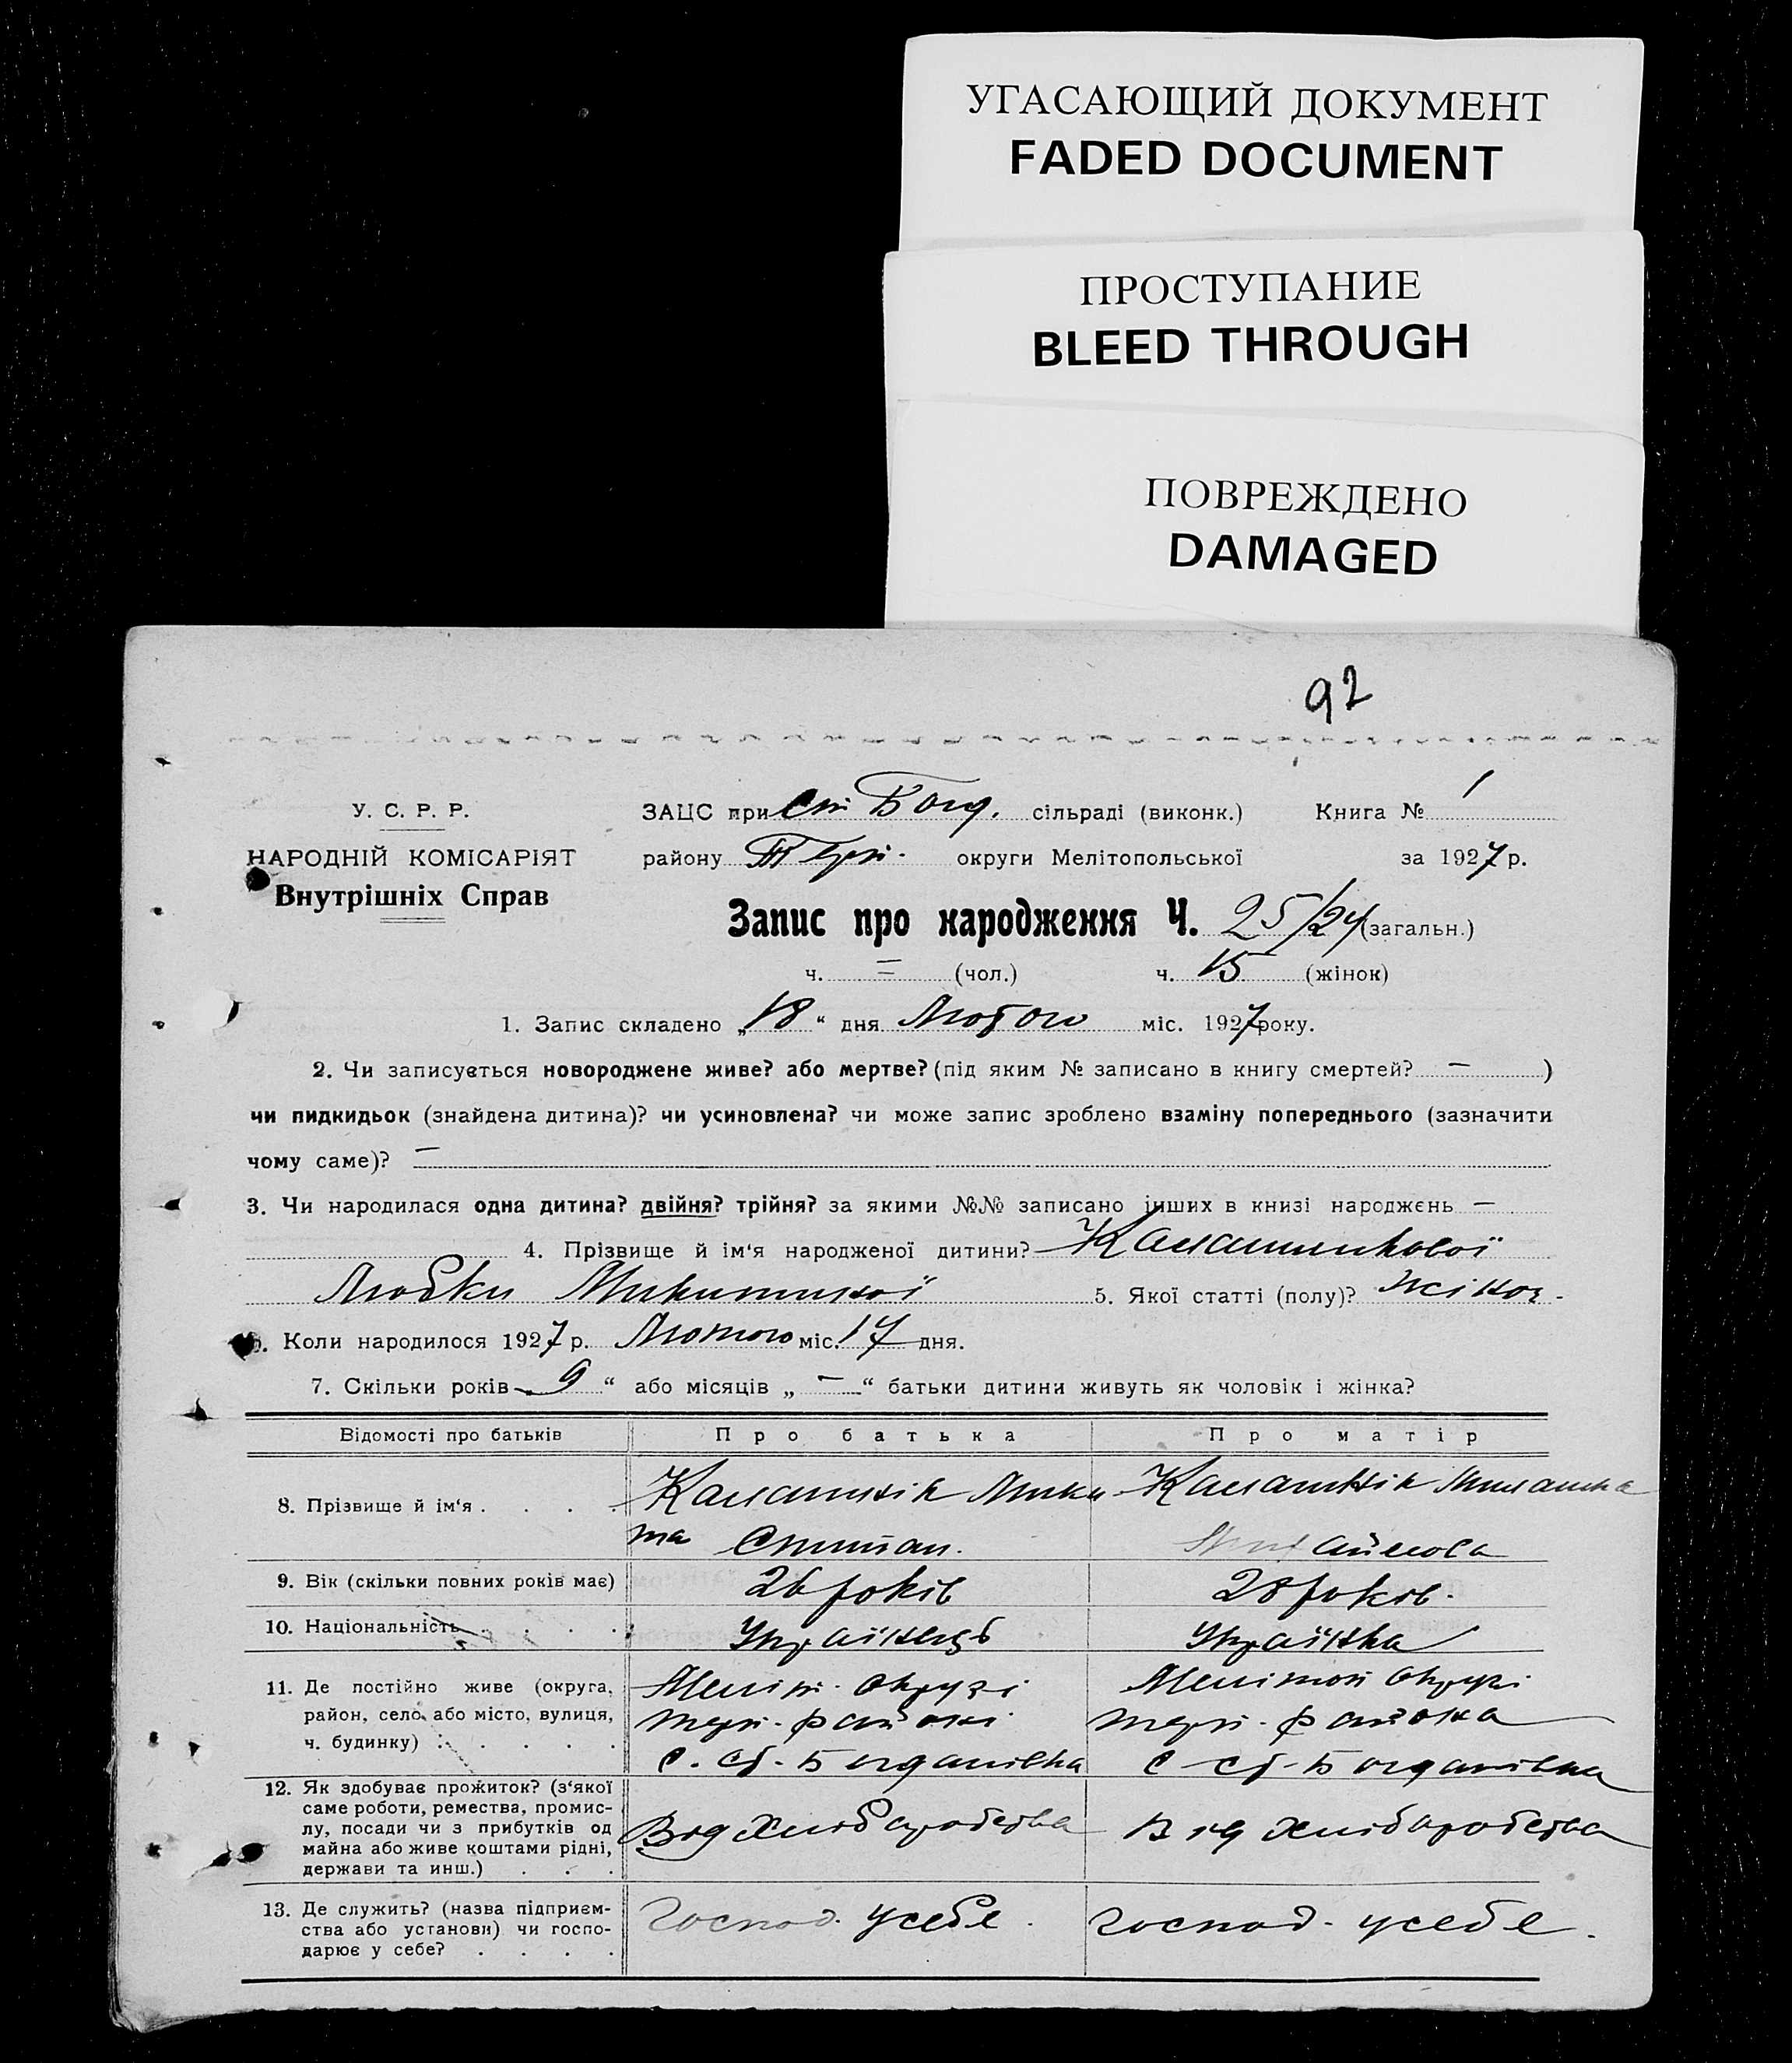 УГАСАЮЩИЙ ДОКУМЕНТ
FADED DOCUMENT
ПРОСТУПАНИЕ
BLEED THROUGH
ПОВРЕЖДЕНО
DAMAGED
92
У. С. Р. Р.
НАРОДНІЙ КОМІСАРІЯТ
Внутрішніх Справ
ЗАЦС при Ст Богд. сільраді (виконк.) Книга № 1
району Терп. округи Мелітопольської за 1927 р.
Запис про народження Ч. 25/24 (загальн.)
ч. = (чол.) ч. 15 (жінок)
1. Запис складено „18“ дня Лютого міс. 1927 року.
2. Чи записується новороджене живе? або мертве? (під яким № записано в книгу смертей? — )
чи пидкидьок (знайдена дитина)? чи усиновлена? чи може запис зроблено взаміну попереднього (зазначити
чому саме)? —
3. Чи народилася одна дитина? двійня? трійня? за якими №№ записано інших в книзі народжєнь —
4. Прізвище й ім‘я народженої дитини? Калашникової
Любки Микитиної 5. Якої статті (полу)? Жіноч-
6. Коли народилося 1927 р. Лютого міс. 17 дня.
7. Скільки років „9“ або місяців „—“ батьки дитини живуть як чоловік і жінка?
Відомості про батьків Про батька Про матір
8. Прізвище й ім‘я . . . . Калашнік Мики Калашнік
та
9. Вік (скільки повних років має) 26 років 28 років.
10. Національність . . . . Українець Українка
11. Де постійно живе (округа, Меліт. округі Мелітоп округи
район, село або місто, вулиця, терп. район терп. района
ч. будинку) . . . . . с. Ст-Богданівка с Ст-Богданівка
12. Як здобуває прожиток? (з‘якої
саме роботи, ремества, промис-
лу, посади чи з прибутків од Від Хліборобства Від Хліборобства
майна або живе коштами рідні,
держави та инш.) . . .
13. Де служить? (назва підприєм- Господ. усебе. господ. усебе.
ства або установи) чи госпо-
дарює у себе? . . . .